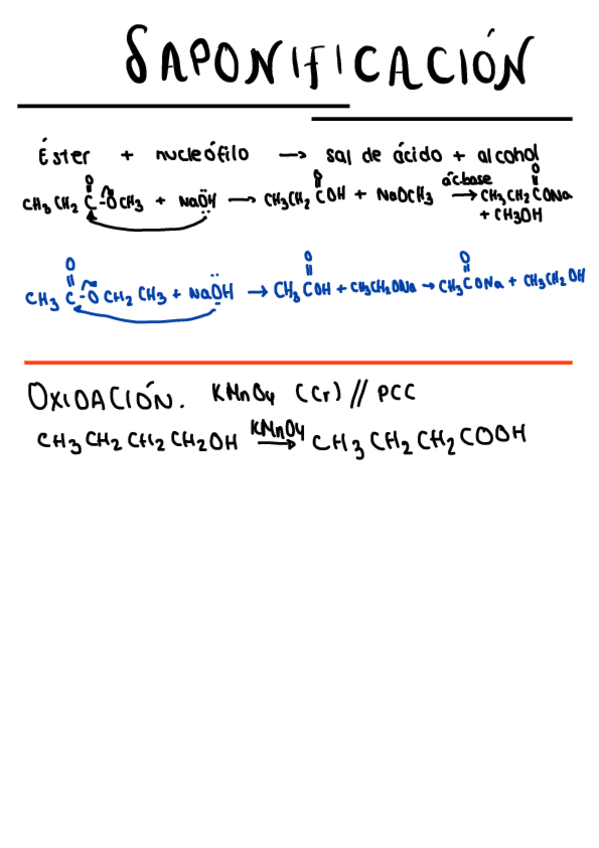 SAPONIFICACIÓN
Éster + nucleófilo → sal de ácido + alcohol
O O ác.base O
CH3CH2C-OCH3 + NaOH → CH3CH2COH + NaOCH3 → CH3CH2CONa
+ CH3OH
O O O
CH3C-OCH2CH3 + NaOH → CH3COH + CH3CH2ONa → CH3CONa + CH3CH2OH
OXIDACIÓN. KMnO4 (Cr) // PCC
CH3CH2CH2CH2OH KMnO4 → CH3CH2CH2COOH